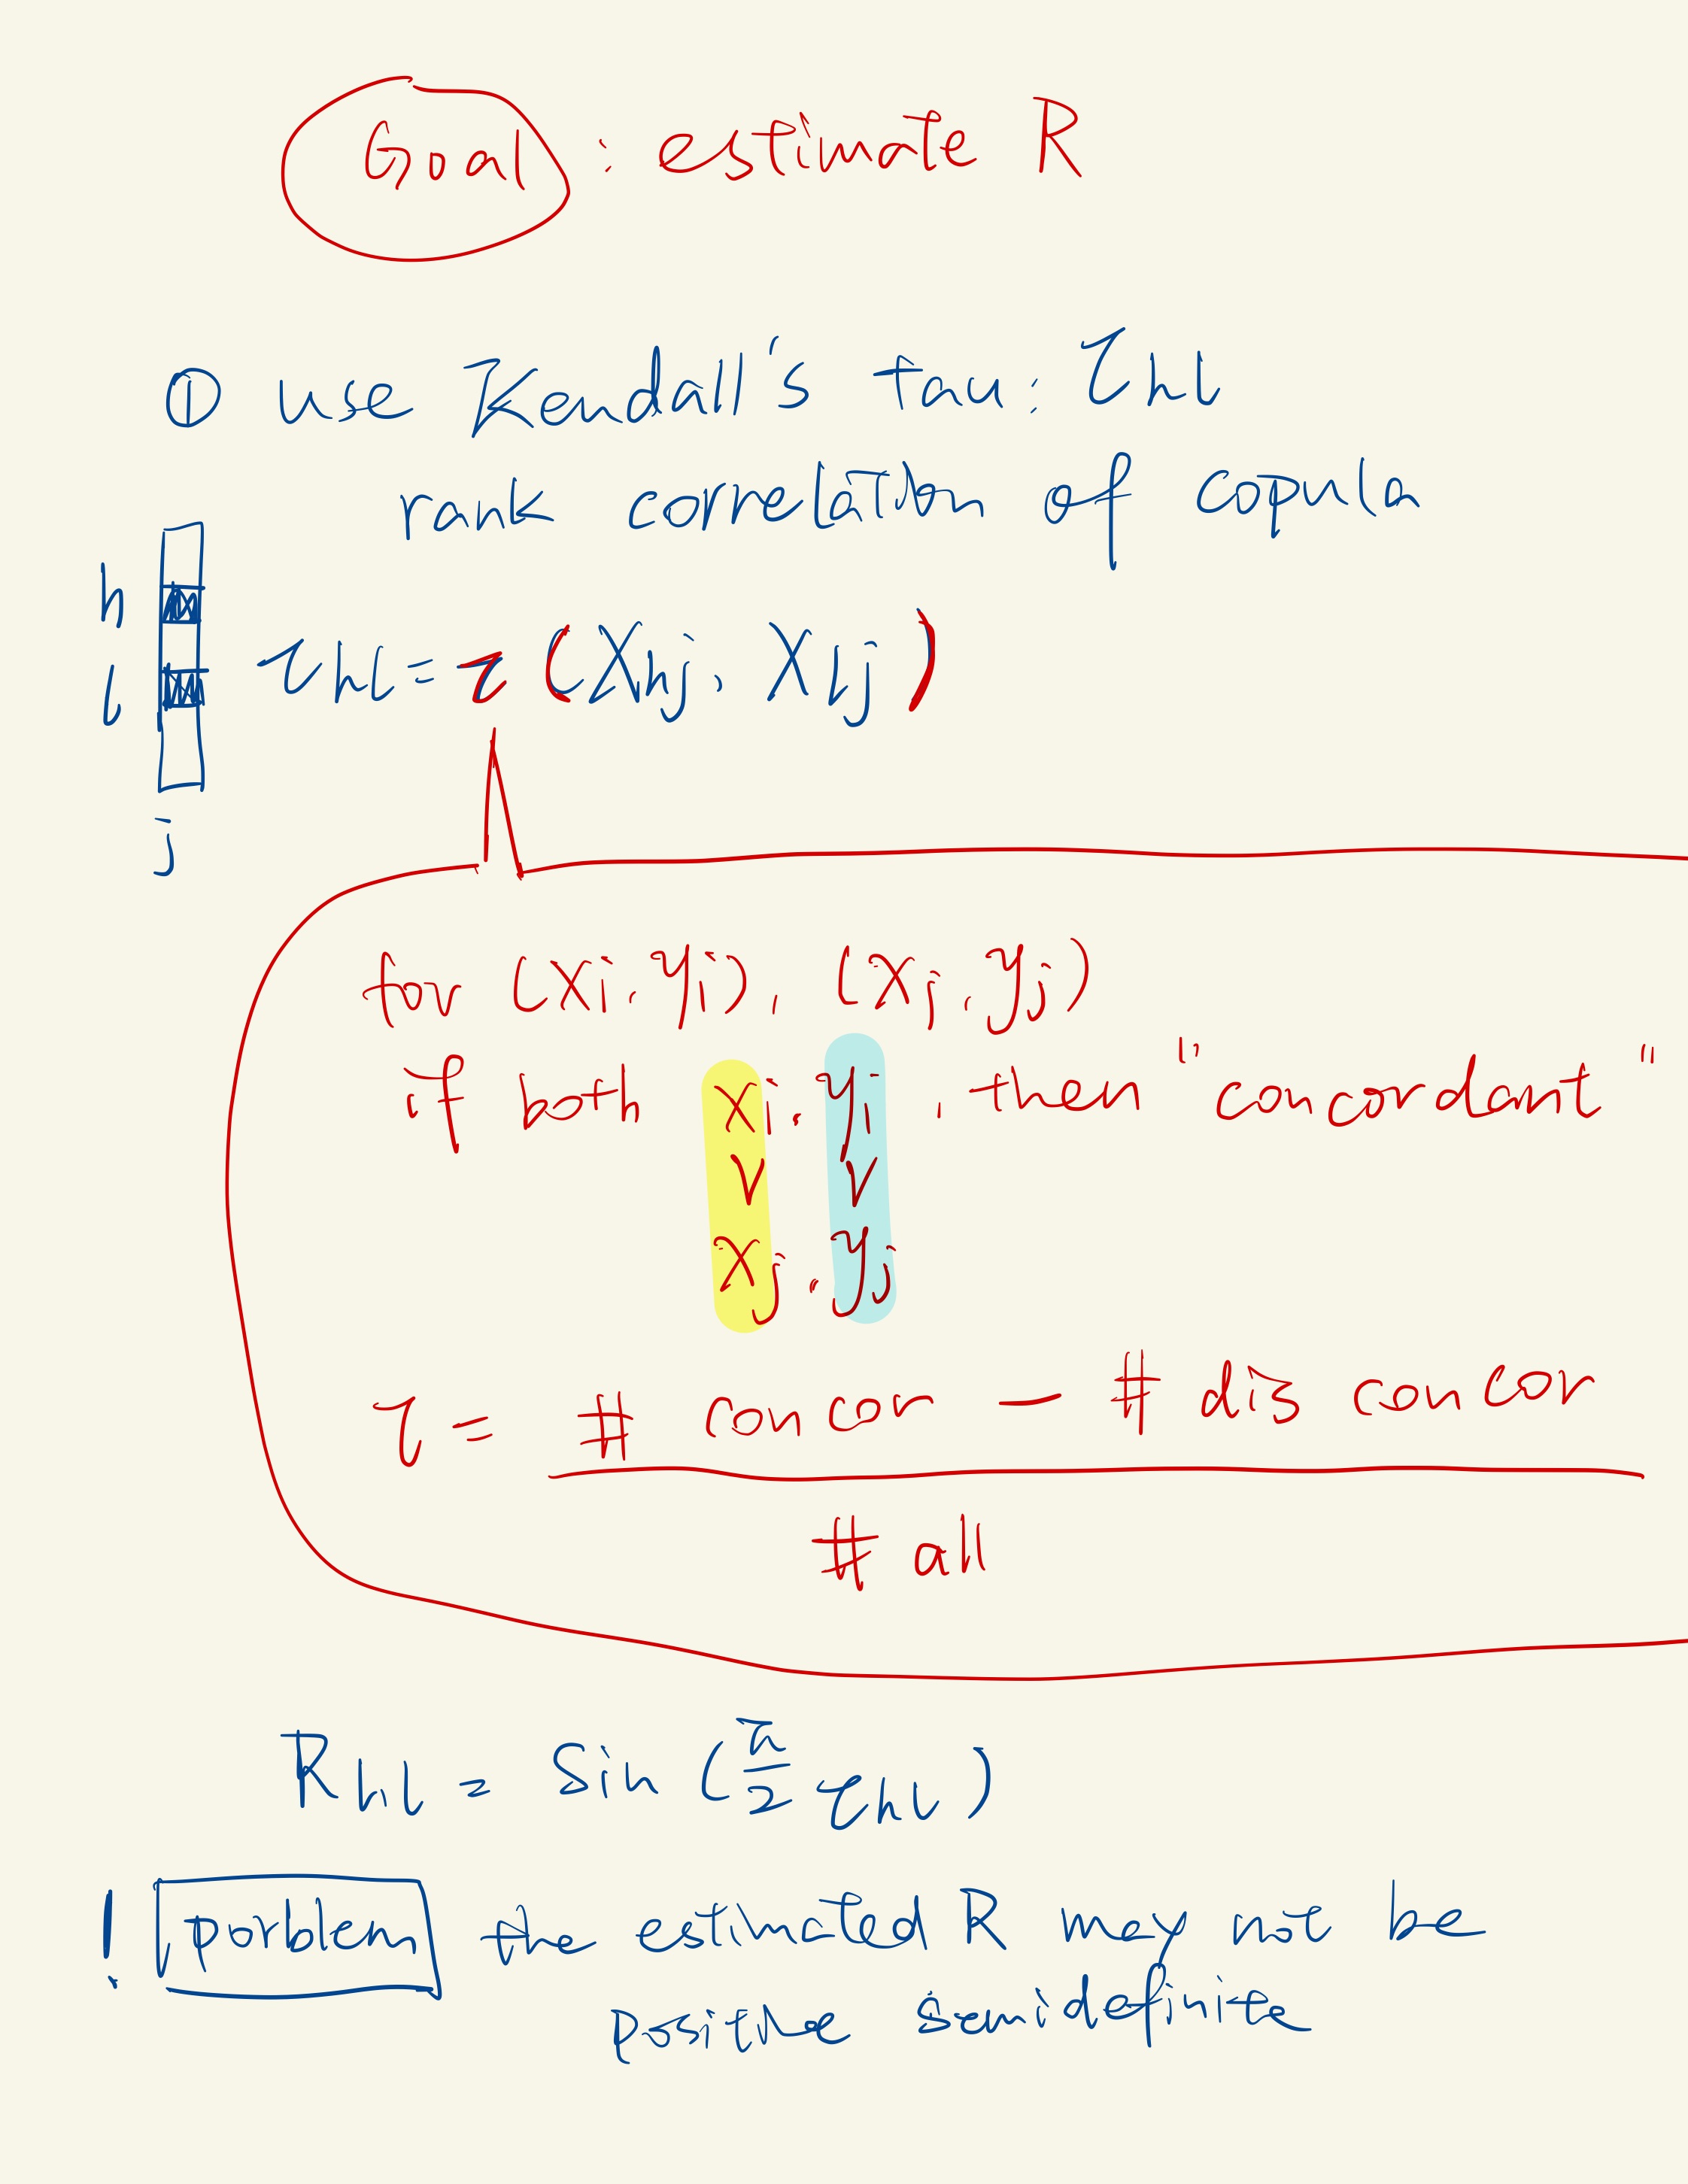 Goal : estimate R
① use Kendall's tau : τhl
rank correlation of copula
h
l
τhl = τ (Xhj, Xlj)
j
for (xi, yi), (xj, yj)
if both xi, yi, then "concordant"
∨ ∨
xj, yj
τ = # concor — # dis concor
# all
Rhl = sin (π/2 τhl)
! porblem the estimated R may not be
positive semidefinite